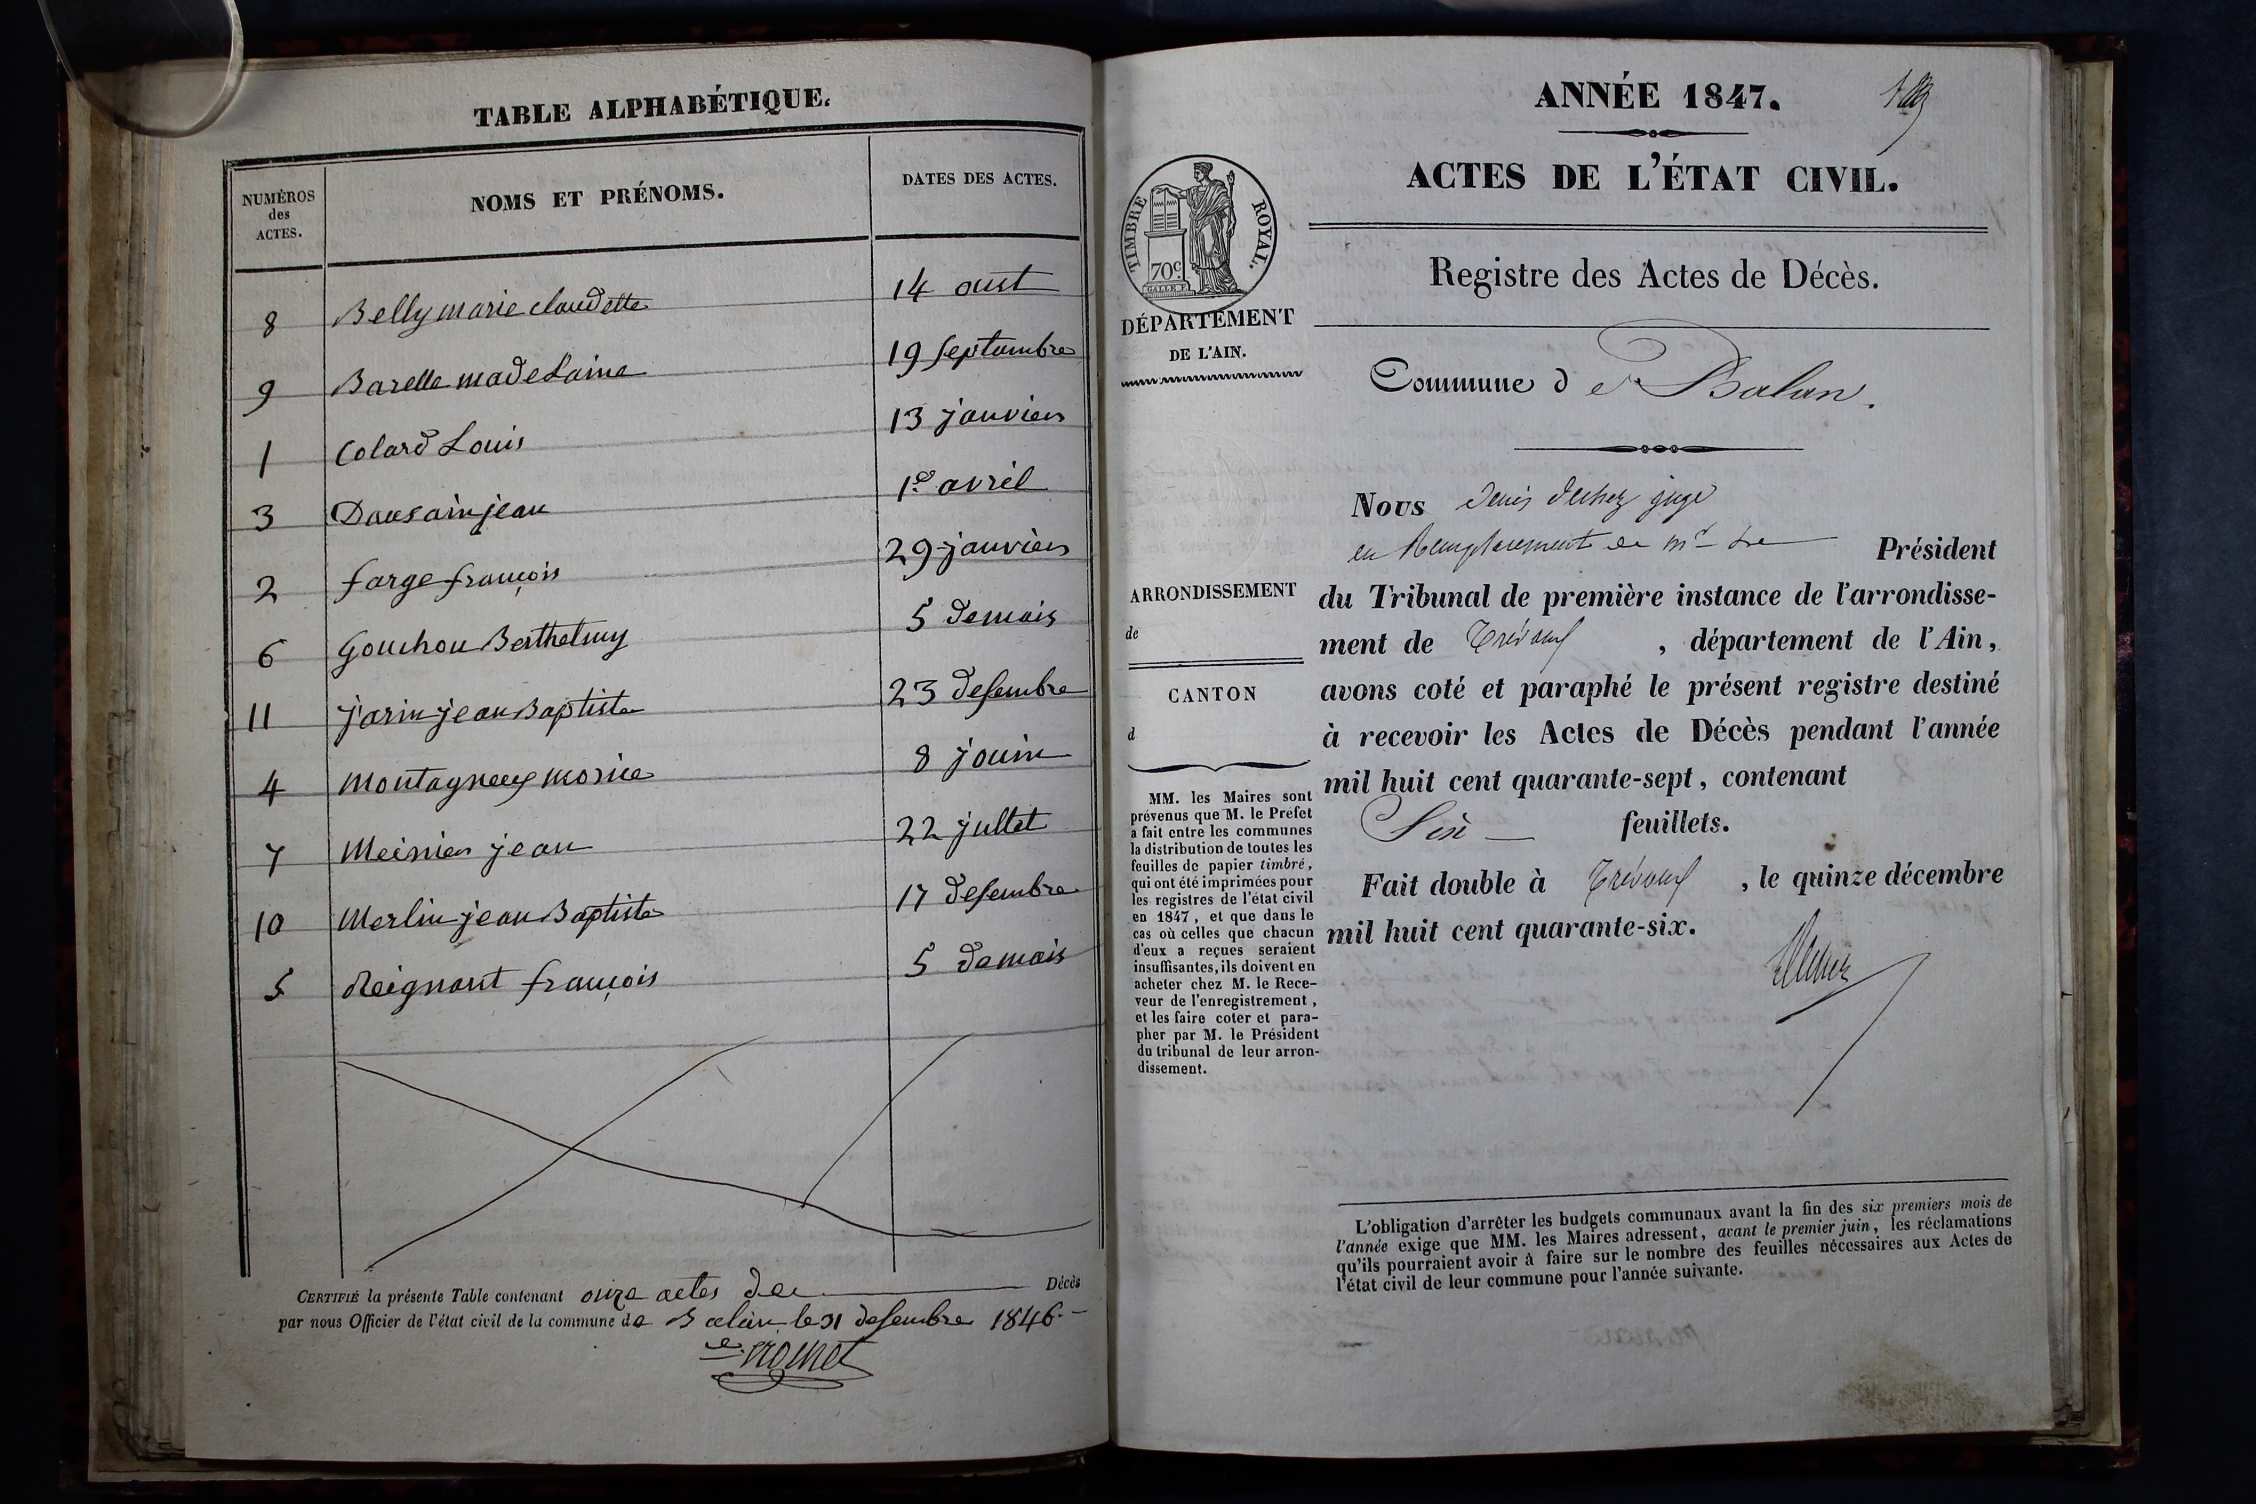 TABLE ALPHABÉTIQUE.
NUMÉROS des ACTES.
NOMS ET PRÉNOMS.
DATES DES ACTES.
8 Belly marie claudette 14 oust
9 Barelle madelaine 19 septembre
1 Colard Louis 13 janvier
3 Dausain jean 1er avril
2 farge françois 29 janvier
6 Gouchon Berthelmy 5 demais
11 jarin jean Baptiste 23 desembre
4 Montagneux morice 8 jouin
7 Meinier jean 22 jullet
10 Merlin jean Baptiste 17 desembre
5 Reignant françois 5 demais
CERTIFIÉ la présente Table contenant onze actes de Décès
par nous Officier de l'état civil de la commune de Balan le 31 desembre 1846.
ANNÉE 1847.
ACTES DE L'ÉTAT CIVIL.
Registre des Actes de Décès.
TIMBRE ROYAL.
70c
DÉPARTEMENT
DE L'AIN.
Commune de Balan.
ARRONDISSEMENT
de
CANTON
d
MM. les Maires sont
prévenus que M. le Préfet
a fait entre les communes
la distribution de toutes les
feuilles de papier timbré,
qui ont été imprimées pour
les registres de l'état civil
en 1847, et que dans le
cas où celles que chacun
d'eux a reçues seraient
insuffisantes, ils doivent en
acheter chez M. le Rece-
veur de l'enregistrement,
et les faire coter et para-
pher par M. le Président
du tribunal de leur arron-
dissement.
Nous Denis juge
en Remplacement de mr Le Président
du Tribunal de première instance de l'arrondisse-
ment de Trévoux, département de l'Ain,
avons coté et paraphé le présent registre destiné
à recevoir les Actes de Décès pendant l'année
mil huit cent quarante-sept, contenant
Six feuillets.
Fait double à Trévoux, le quinze décembre
mil huit cent quarante-six.
L'obligation d'arrêter les budgets communaux avant la fin des six premiers mois de
l'année exige que MM. les Maires adressent, avant le premier juin, les réclamations
qu'ils pourraient avoir à faire sur le nombre des feuilles nécessaires aux Actes de
l'état civil de leur commune pour l'année suivante.